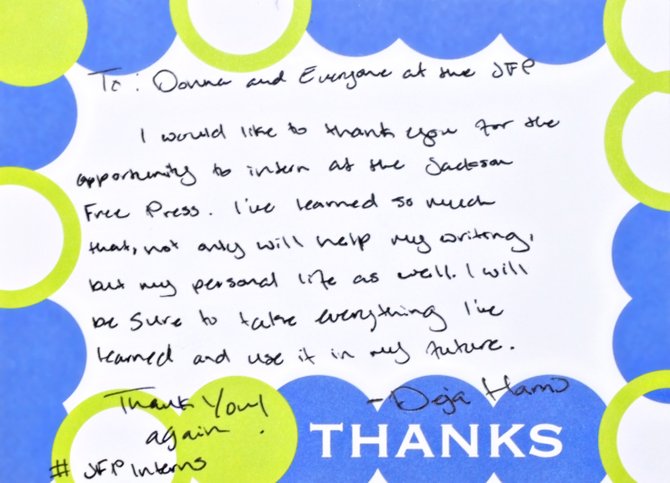 To: Donna and Everyone at the JFP
I would like to thank you for the
opportunity to intern at the Jackson
Free Press. I've learned so much
that, not only will help my writing,
but my personal life as well. I will
be sure to take everything I've
learned and use it in my future.
- Deja
Thank You!
again
THANKS
# JFP Interns